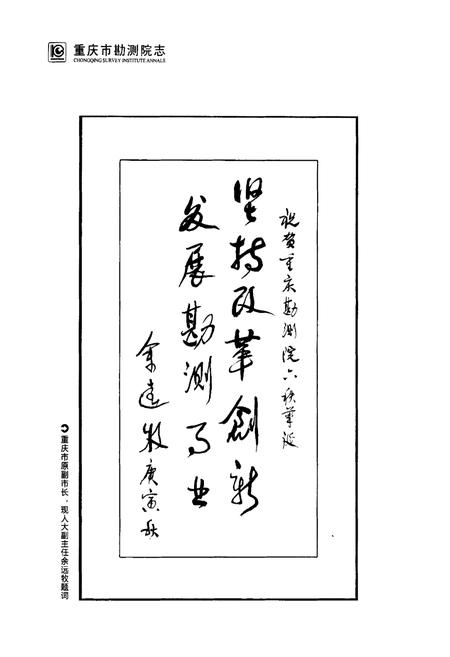 重庆市勘测院志
CHONGQING SURVEY INSTITUTE ANNALS
祝贺重庆勘测院六秩华诞
坚持改革创新
发展勘测事业
余远牧 庚寅秋
重庆市原副市长，现人大副主任余远牧题词